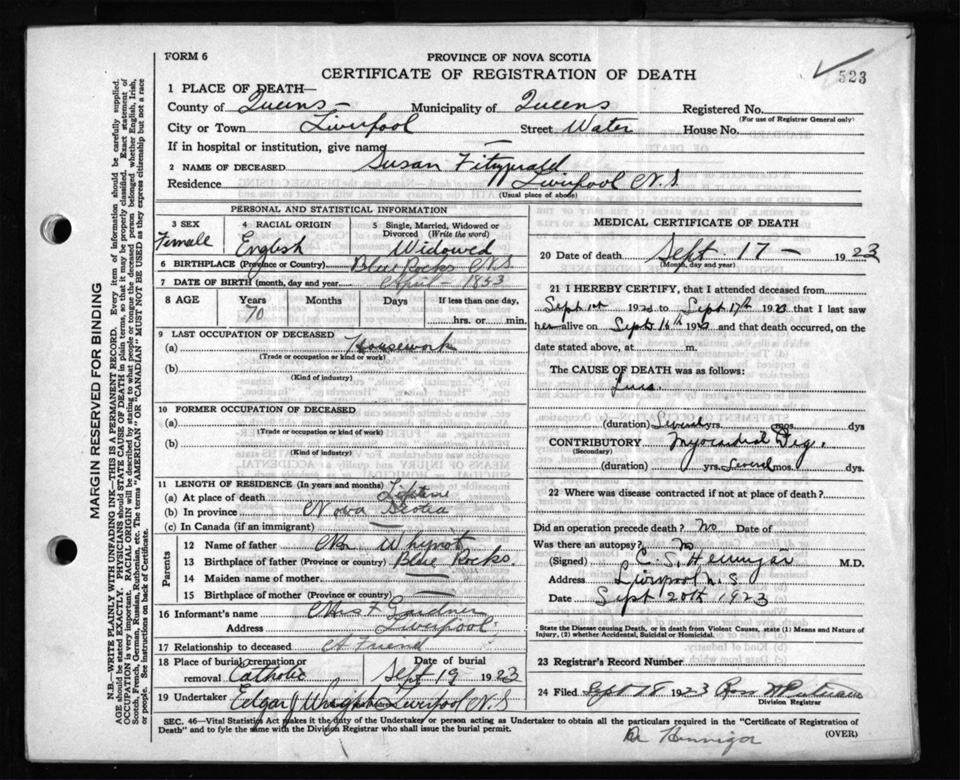 FORM 6
PROVINCE OF NOVA SCOTIA
CERTIFICATE OF REGISTRATION OF DEATH
523
1 PLACE OF DEATH—
County of Queens — Municipality of Queens Registered No.
(For use of Registrar General only)
City or Town Liverpool Street Water House No.
If in hospital or institution, give name —
2 NAME OF DECEASED Susan Fitzgerald
Residence Liverpool N.S.
(Usual place of abode)
PERSONAL AND STATISTICAL INFORMATION
3 SEX Female
4 RACIAL ORIGIN English
5 Single, Married, Widowed or Divorced (Write the word) Widowed
6 BIRTHPLACE (Province or Country) Blue Rocks N.S.
7 DATE OF BIRTH (month, day and year) April — 1853
8 AGE Years 70 Months Days If less than one day, hrs. or min.
9 LAST OCCUPATION OF DECEASED
(a) Housework
(Trade or occupation or kind of work)
(b)
(Kind of industry)
10 FORMER OCCUPATION OF DECEASED
(a)
(Trade or occupation or kind of work)
(b)
(Kind of industry)
11 LENGTH OF RESIDENCE (In years and months)
(a) At place of death Lifetime
(b) In province Nova Scotia
(c) In Canada (if an immigrant) —
Parents
12 Name of father Whynot
13 Birthplace of father (Province or country) Blue Rocks.
14 Maiden name of mother —
15 Birthplace of mother (Province or country) —
16 Informant's name Gardner
Address Liverpool
17 Relationship to deceased A Friend
18 Place of burial, cremation or removal Catholic Date of burial Sept 19 1923
19 Undertaker Edgar Liverpool N.S
MEDICAL CERTIFICATE OF DEATH
20 Date of death Sept 17 — 1923
(Month, day and year)
21 I HEREBY CERTIFY, that I attended deceased from
Sept 192 to Sept 17th 192 that I last saw
her alive on Sept 16th 192 and that death occurred, on the
date stated above, at m.
The CAUSE OF DEATH was as follows:
(duration) Several yrs. mos. dys
CONTRIBUTORY Myocardial Deg.
(Secondary)
(duration) yrs. Several mos. dys.
22 Where was disease contracted if not at place of death?
Did an operation precede death? No Date of
Was there an autopsy? No
(Signed) C. S. Hennigar M.D.
Address Liverpool N.S
Date Sept 20th 1923
State the Disease causing Death, or in death from Violent Causes, state (1) Means and Nature of
Injury, (2) whether Accidental, Suicidal or Homicidal.
23 Registrar's Record Number
24 Filed Sept 18 1923 Ross
Division Registrar
SEC. 46—Vital Statistics Act makes it the duty of the Undertaker or person acting as Undertaker to obtain all the particulars required in the "Certificate of Registration of
Death" and to fyle the same with the Division Registrar who shall issue the burial permit.
(OVER)
Dr Hennigar
MARGIN RESERVED FOR BINDING
N.B.—WRITE PLAINLY WITH UNFADING INK—THIS IS A PERMANENT RECORD. Every item of information should be carefully supplied.
AGE should be stated EXACTLY. PHYSICIANS should STATE CAUSE OF DEATH in plain terms, so that it may be properly classified. Exact statement of
OCCUPATION is very important. RACIAL ORIGIN will be described by stating to what people or tongue the deceased person belonged whether English, Irish,
Scotch, French, German, Russian, Ruthenian, etc. The terms "AMERICAN" OR "CANADIAN" MUST NOT BE USED as they express citizenship but not a race
or people. See instructions on back of Certificate.